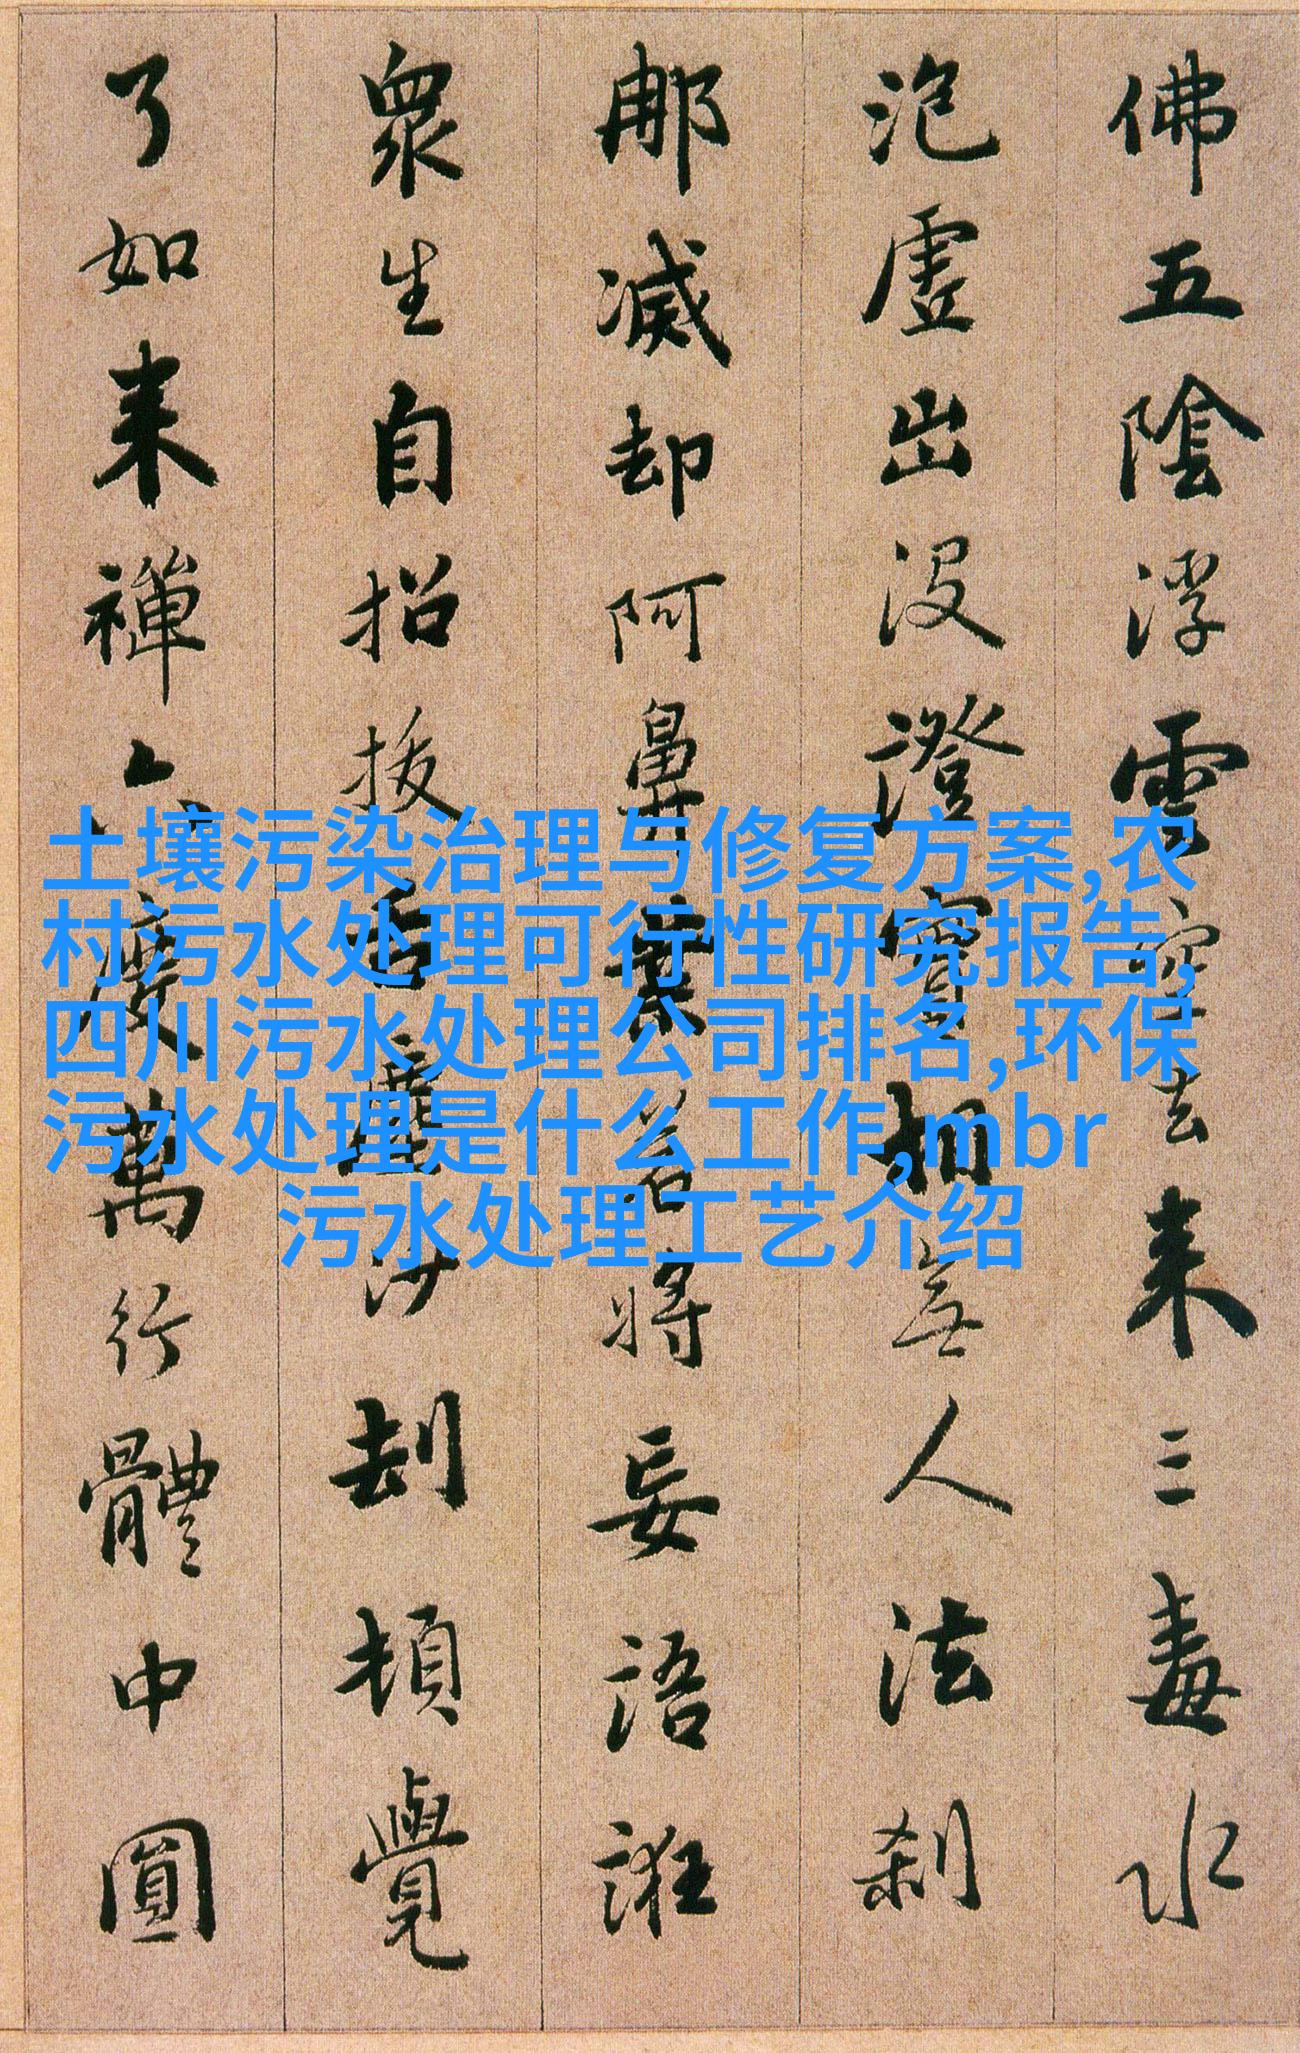 佛五陰浮雲空去来三毒水
泡虛出沒證實相無人法刹
那滅却阿鼻業若將妄語誑
衆生自招拔舌塵沙劫頓覺
了如来禪六度萬行體中圓
土壤污染治理与修复方案,农
村污水处理可行性研究报告,
四川污水处理公司排名,环保
污水处理是什么工作,mbr
污水处理工艺介绍